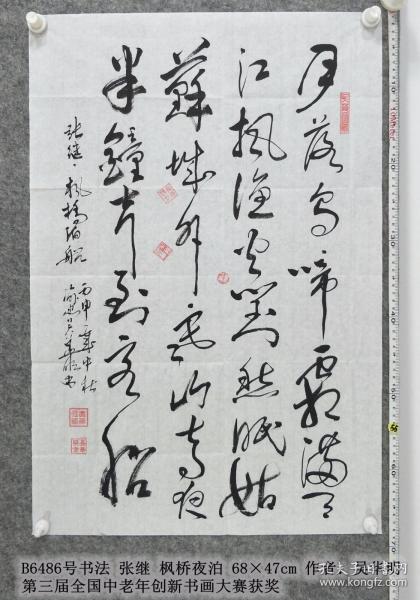 月落乌啼霜满天
江枫渔火对愁眠姑
蘇城外寒山寺夜
半鐘声到客船
张继 枫桥泊船
丙申 中秋
B6486号书法 张继 枫桥夜泊 68×47cm 作者：吴华
第三届全国中老年创新书画大赛获奖